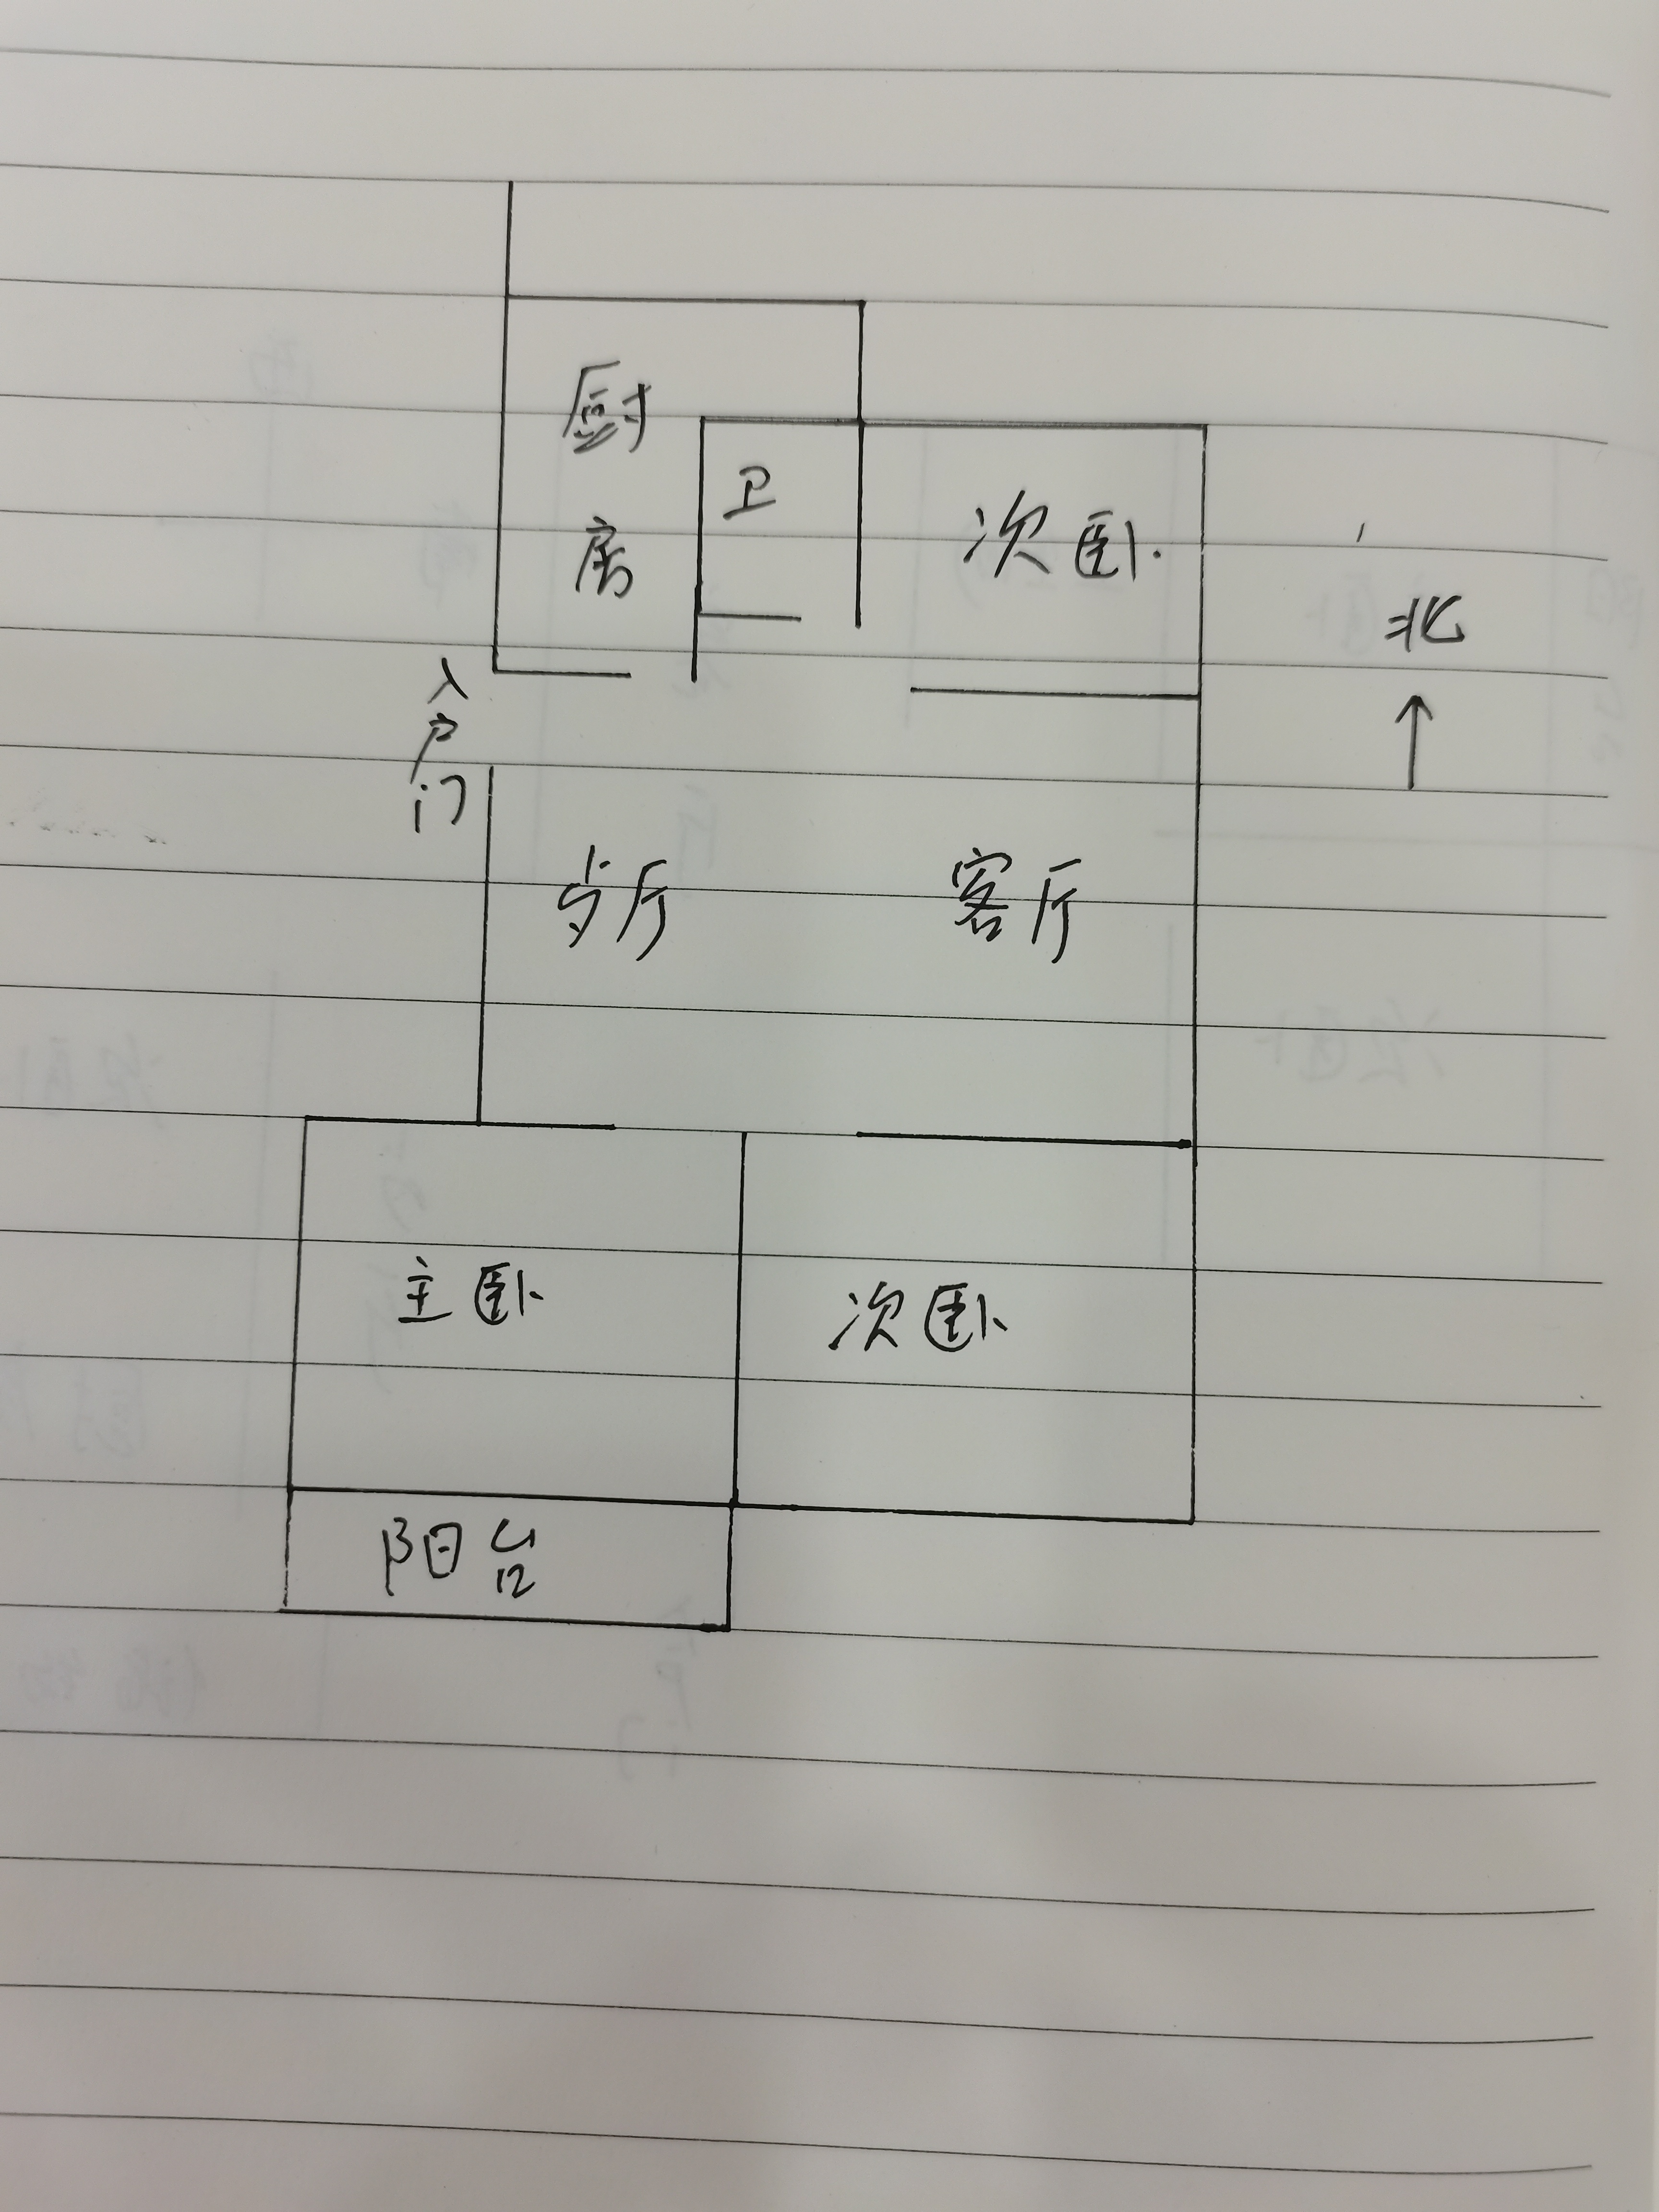 厨房
卫
次卧
北
入户门
歺厅
客厅
主卧
次卧
阳台